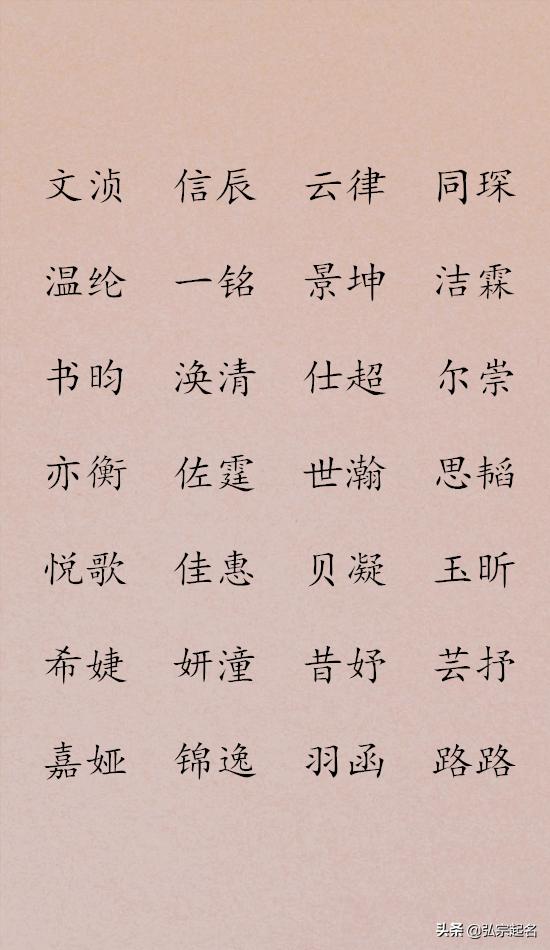 文浈 信辰 云律 同琛
温纶 一铭 景坤 洁霖
书昀 涣清 仕超 尔崇
亦衡 佐霆 世瀚 思韬
悦歌 佳惠 贝凝 玉昕
希婕 妍潼 昔妤 芸抒
嘉娅 锦逸 羽函 路路
头条 @弘宗起名